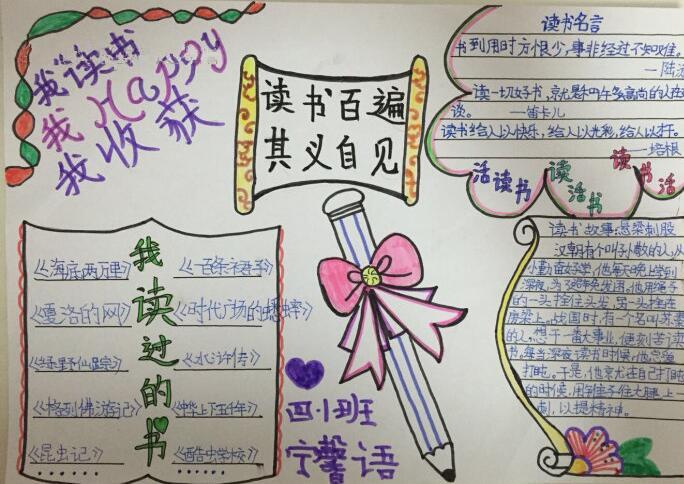 我读书
我Happy
我收获
读书百遍
其义自见
读书名言
书到用时方恨少,事非经过不知难。
—陆
读一切好书,就是和许多高尚的人在
谈。——笛卡儿
读书给人以快乐,给人以光彩,给人以才干。
——培根
活读书
读活书
读书活
我读过的书
《海底两万里》
《一百条裙子》
《夏洛的网》
《时代广场的蟋蟀》
《绿野仙踪》
《水浒传》
《格列佛游记》
《中华上下五千年》
《昆虫记》
《酷虫学校》
……
……
四小班
宁馨语
读书故事:悬梁刺股
汉朝有个叫孙敬的人,从
小勤奋好学,他每天晚上学到
深夜,为了避免发困,他用绳子
的一头拴住头发,另一头拴在
房梁上。战国时,有个名叫苏秦
的人,想干一番大事业,便刻苦读
书,每当深夜读书时候,他总爱
打盹。于是,他就在自己打盹
的时候,用锥子往大腿上一
刺,以提精神。